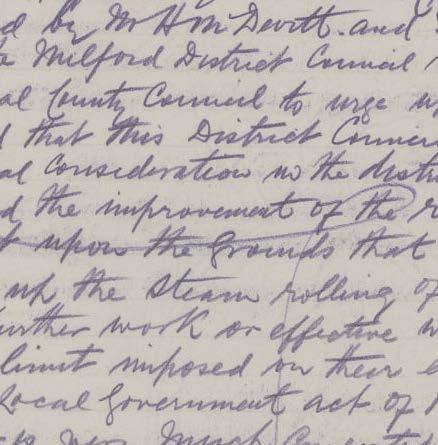 d by Mr H McDevitt. and
Milford District Council
al County Council to urge u
d that this District Counci
al consideration in the distri
d the improvement of the r
t upon the grounds that
up the steam rolling of
further work or effective w
limit imposed on their e
Local Government act of